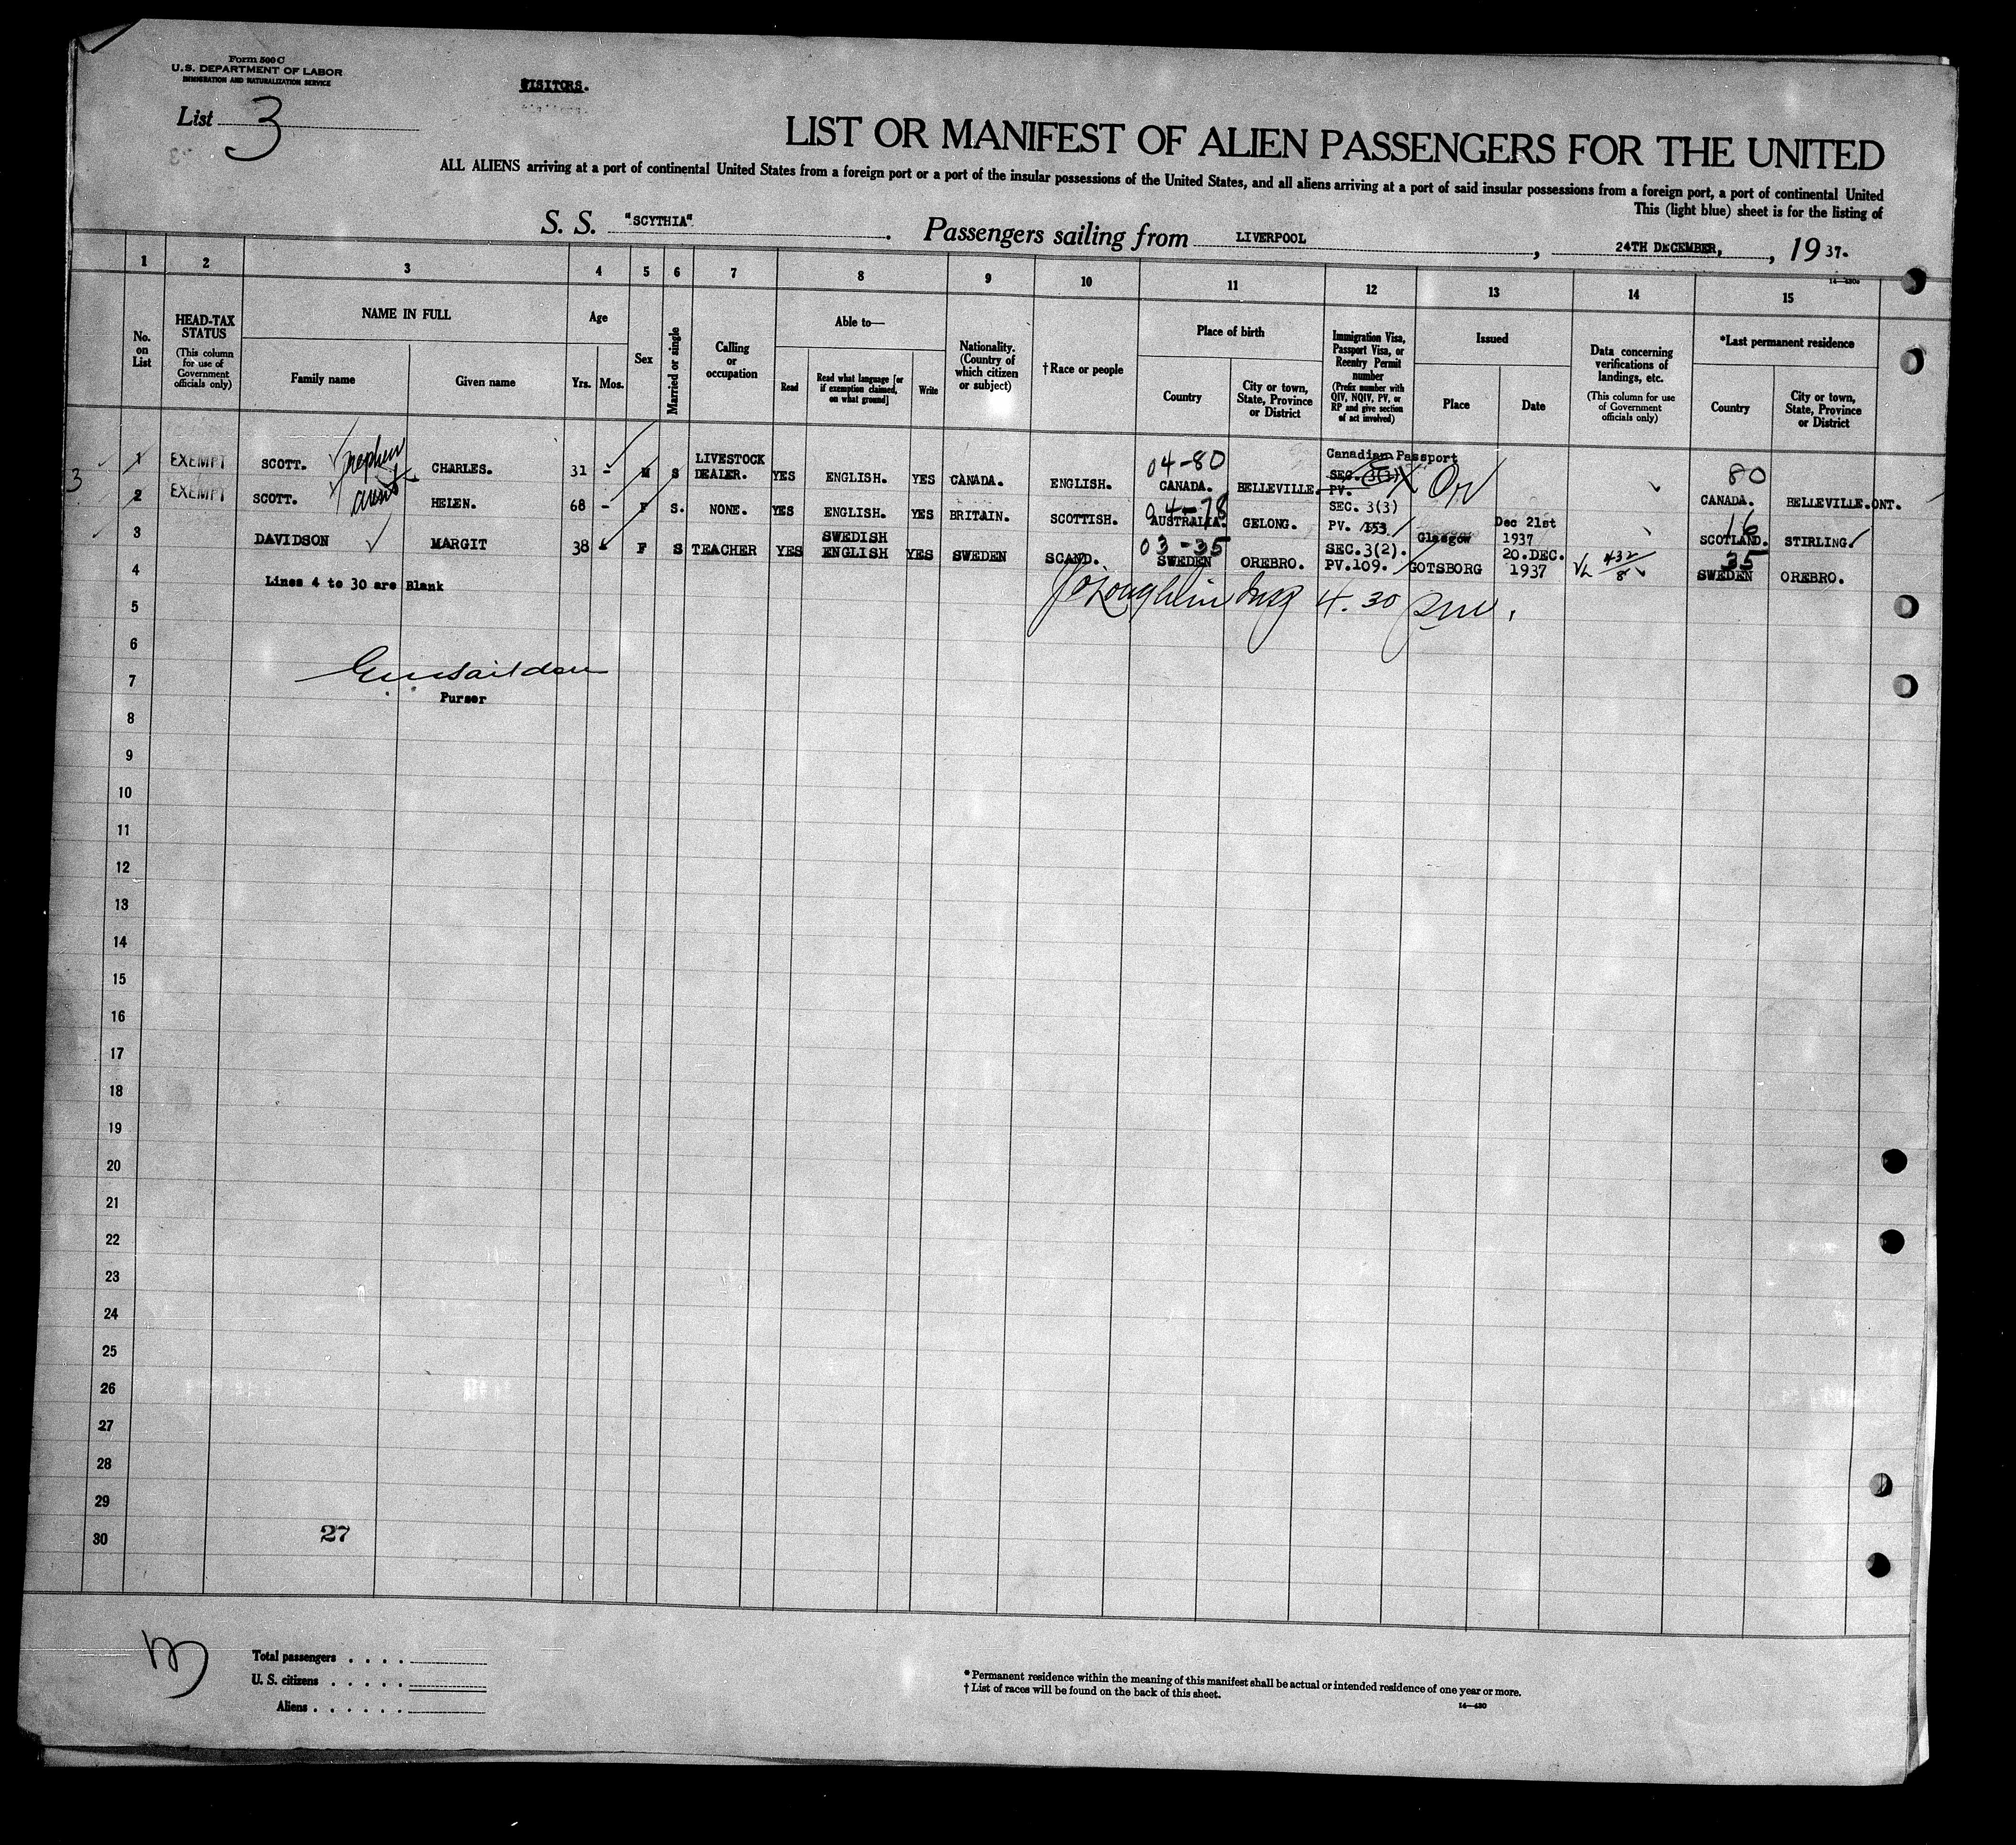 Form 500 C
U. S. DEPARTMENT OF LABOR
IMMIGRATION AND NATURALIZATION SERVICE
VISITORS.
List 3
LIST OR MANIFEST OF ALIEN PASSENGERS FOR THE UNITED
ALL ALIENS arriving at a port of continental United States from a foreign port or a port of the insular possessions of the United States, and all aliens arriving at a port of said insular possessions from a foreign port, a port of continental United
This (light blue) sheet is for the listing of
S. S. "SCYTHIA". Passengers sailing from LIVERPOOL, 24TH DECEMBER, 1937.
14—430a
1 2 3 4 5 6 7 8 9 10 11 12 13 14 15
No. on List
HEAD-TAX STATUS
(This column for use of Government officials only)
NAME IN FULL
Family name
Given name
Age
Yrs. Mos.
Sex
Married or single
Calling or occupation
Able to—
Read
Read what language [or if exemption claimed, on what ground]
Write
Nationality. (Country of which citizen or subject)
†Race or people
Place of birth
Country
City or town, State, Province or District
Immigration Visa, Passport Visa, or Reentry Permit number
(Prefix number with QIV, NQIV, PV, or RP and give section of act involved)
Issued
Place
Date
Data concerning verifications of landings, etc.
(This column for use of Government officials only)
*Last permanent residence
Country
City or town, State, Province or District
3
1 EXEMPT SCOTT. nephew CHARLES. 31 - M S LIVESTOCK DEALER. YES ENGLISH. YES CANADA. ENGLISH. 04-80 CANADA. BELLEVILLE. Canadian Passport SEC. 3(3) PV. 80 CANADA. BELLEVILLE.ONT.
2 EXEMPT SCOTT. aunt HELEN. 68 - F S. NONE. YES ENGLISH. YES BRITAIN. SCOTTISH. 04-78 AUSTRALIA. GELONG. SEC. 3(3) PV. 153 Glasgow Dec 21st 1937 16 SCOTLAND. STIRLING.
3 DAVIDSON MARGIT 38 F S TEACHER YES SWEDISH ENGLISH YES SWEDEN SCAND. 03-35 SWEDEN OREBRO. SEC.3(2). PV.109. GOTSBORG 20.DEC. 1937 432/8 35 SWEDEN OREBRO.
4 Lines 4 to 30 are Blank
J O'Loughlin Insp 4.30 pm.
5
6
7
Purser
8
9
10
11
12
13
14
15
16
17
18
19
20
21
22
23
24
25
26
27
28
29
30 27
Total passengers . . . .
U. S. citizens . . . . .
Aliens . . . . . .
* Permanent residence within the meaning of this manifest shall be actual or intended residence of one year or more.
† List of races will be found on the back of this sheet.
14—430